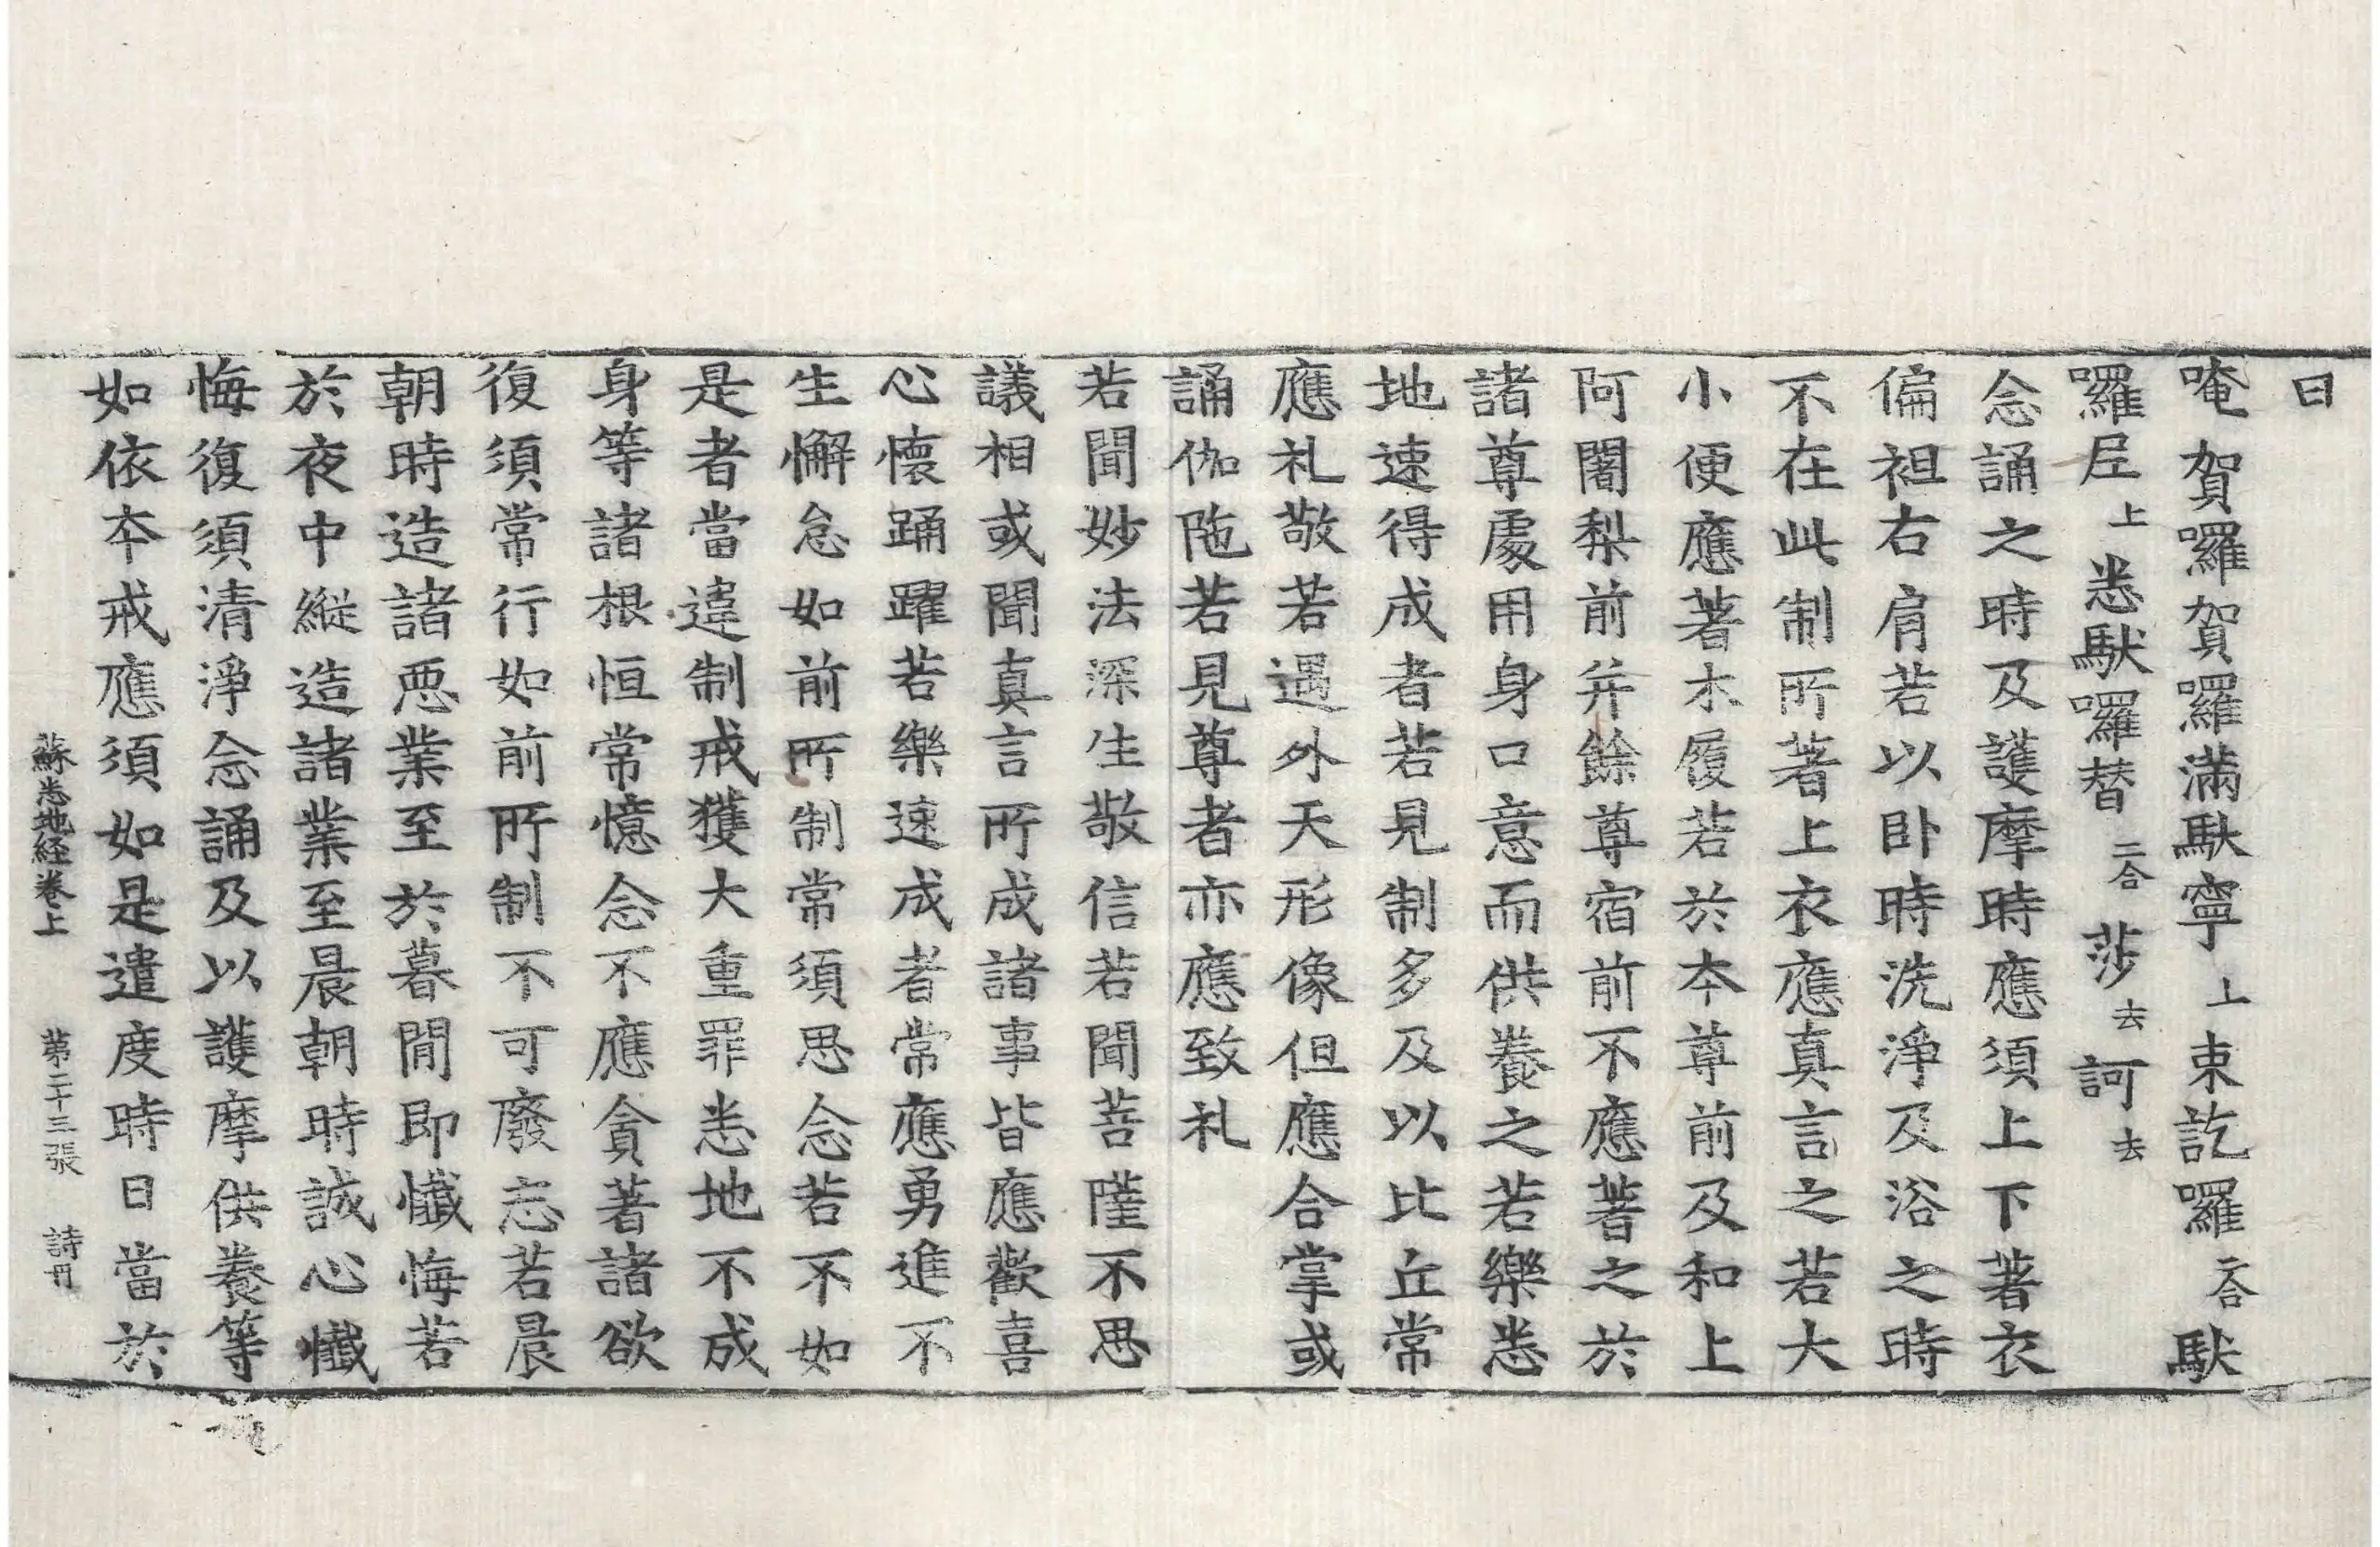 曰
唵賀囉賀囉滿䭾寧上束訖囉二合䭾
囉𡱝上悉䭾囉替二合莎去訶去
念誦之時及護摩時應須上下著衣
偏袒右肩若以卧時洗淨及浴之時
不在此制所著上衣應真言之若大
小便應著木履若於夲尊前及和上
阿闍梨前并餘尊宿前不應著之於
諸尊處用身口意而供養之若樂悉
地速得成者若見制多及以比丘常
應礼敬若遇外天形像但應合掌或
誦伽陁若見尊者亦應致礼
若聞妙法深生敬信若聞菩𮥼不思
議相或聞真言所成諸事皆應歡喜
心懷踊躍若樂速成者常應勇進不
生懈怠如前所制常須思念若不如
是者當違制戒獲大重罪悉地不成
身等諸根恒常憶念不應貪著諸欲
復須常行如前所制不可廢忘若晨
朝時造諸惡業至於暮閒即懺悔若
於夜中縱造諸業至晨朝時誠心懺
悔復須清淨念誦及以護摩供養等
如依夲戒應須如是遣度時日當於
蘇悉地経卷上 第二十三張 詩𠕋